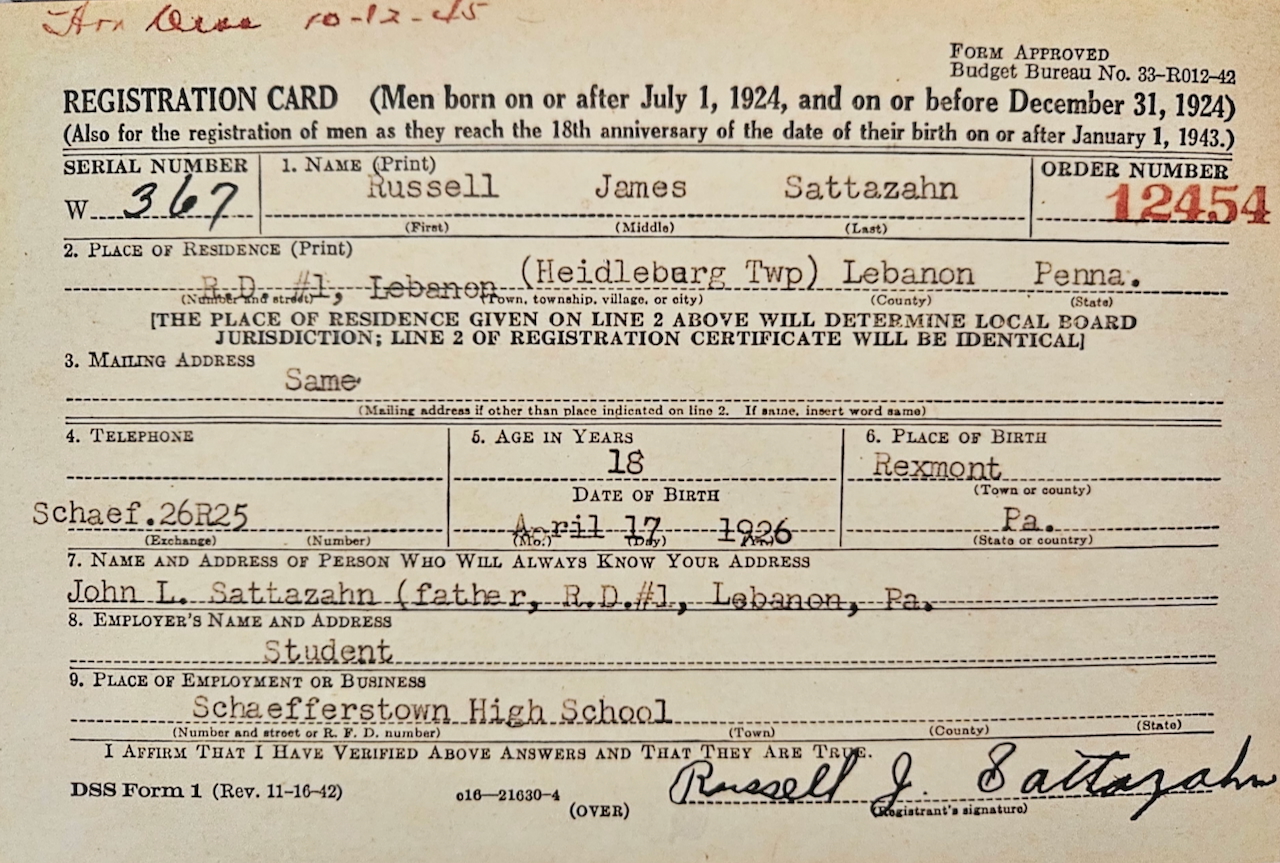 Hon Disc 10-12-45
FORM APPROVED
Budget Bureau No. 33-R012-42
REGISTRATION CARD (Men born on or after July 1, 1924, and on or before December 31, 1924)
(Also for the registration of men as they reach the 18th anniversary of the date of their birth on or after January 1, 1943.)
SERIAL NUMBER 1. NAME (Print) ORDER NUMBER
W 367 Russell James Sattazahn 12454
(First) (Middle) (Last)
2. PLACE OF RESIDENCE (Print)
R.D. #1, Lebanon (Heidleburg Twp) Lebanon Penna.
(Number and street) (Town, township, village, or city) (County) (State)
[THE PLACE OF RESIDENCE GIVEN ON LINE 2 ABOVE WILL DETERMINE LOCAL BOARD
JURISDICTION; LINE 2 OF REGISTRATION CERTIFICATE WILL BE IDENTICAL]
3. MAILING ADDRESS
Same
(Mailing address if other than place indicated on line 2. If same, insert word same)
4. TELEPHONE 5. AGE IN YEARS 6. PLACE OF BIRTH
18 Rexmont
DATE OF BIRTH (Town or county)
Schaef.26R25 April 17 1926 Pa.
(Exchange) (Number) (Mo.) (Day) (Yr.) (State or country)
7. NAME AND ADDRESS OF PERSON WHO WILL ALWAYS KNOW YOUR ADDRESS
John L. Sattazahn (father, R.D.#1, Lebanon, Pa.
8. EMPLOYER'S NAME AND ADDRESS
Student
9. PLACE OF EMPLOYMENT OR BUSINESS
Schaefferstown High School
(Number and street or R. F. D. number) (Town) (County) (State)
I AFFIRM THAT I HAVE VERIFIED ABOVE ANSWERS AND THAT THEY ARE TRUE.
DSS Form 1 (Rev. 11-16-42) c16—21630-4 Russell J. Sattazahn
(OVER) (Registrant's signature)